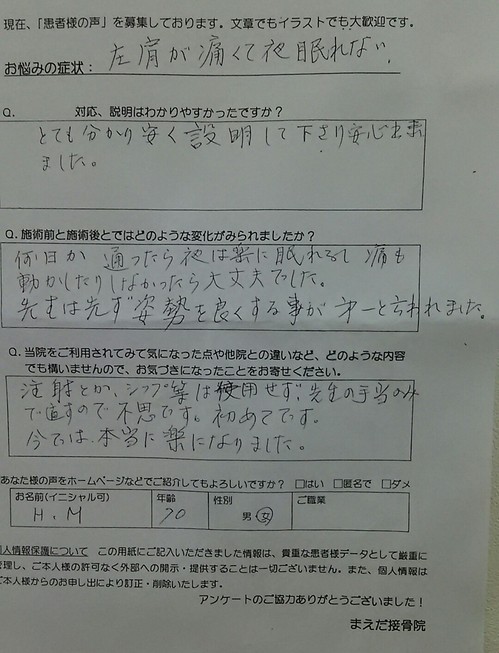 現在、「患者様の声」を募集しております。文章でもイラストでも大歓迎です。
お悩みの症状：左肩が痛くて夜眠れない、
Q. 対応、説明はわかりやすかったですか？
とても分かり安く説明して下さり安心出来
ました。
Q. 施術前と施術後とではどのような変化がみられましたか？
何日か通ったら夜は楽に眠れるし痛も
動かしたりしなかったら大丈夫でした。
先ずは先ず姿勢を良くする事が才一と言われました。
Q. 当院をご利用されてみて気になった点や他院との違いなど、どのような内容
でも構いませんので、お気づきになったことをお寄せください。
注射とか、シップ薬は使用せず、先生の手当のみ
で直すので不思です。初めてです。
今では、本当に楽になりました。
あなた様の声をホームページなどでご紹介してもよろしいですか？ □はい □匿名で □ダメ
お名前(イニシャル可) 年齢 性別 ご職業
H、M 70 男・女
個人情報保護について この用紙にご記入いただきました情報は、貴重な患者様データとして厳重に
管理し、ご本人様の許可なく外部への開示・提供することは一切ございません。また、個人情報は
ご本人様からのお申し出により訂正・削除いたします。
アンケートのご協力ありがとうございました！
まえだ接骨院